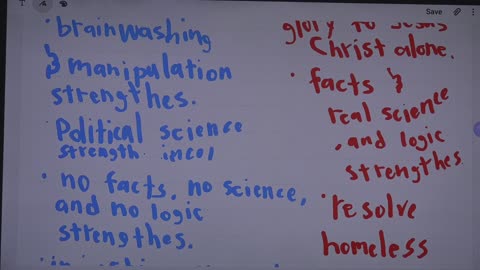 Save
• brainwashing
& manipulation
strengthes.
Political science
strength incol
• no facts, no science,
and no logic
strengthes.
glory to Jesus
Christ alone.
• facts &
real science
, and logic
strengthes.
• resolve
homeless